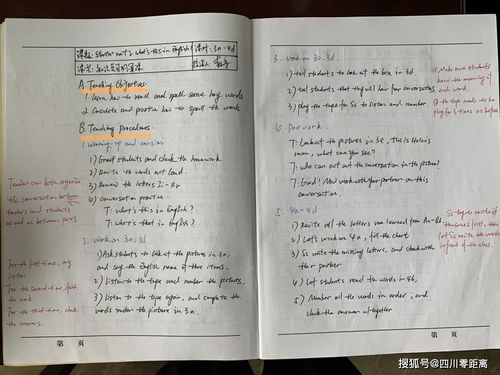 课题: Starter unit 2 What's this in English? 课时: 3a-4d
A. Teaching Objectives:
1. Learn how to read and spell some key words
2. Consolidate and practise how to spell the words
B. Teaching procedures:
1. Warming-up and revision
1) Greet students and check the homework
2) Recite the words out loud
3) Review the letters Ii-Rr
4) conversation practice
T: what's this in English?
T: what's that in English?
2. work on 3a, 3b
1) Ask students to look at the pictures in 3a,
and say the English name of these items.
2) Listen to the tape and number the pictures.
3) Listen to the tape again, and complete the
words under the picture in 3a.
Teacher can both organize
the conversation between
teachers and students
as well as between pairs
For the first time, only
listen
For the second time, finish
the work
For the third time, check
the answers.
第 页
3. work on 3c-3d.
1) tell students to look at the box in 3d
2) tell students that they will hear four conversations
3) play the tape for Ss to listen and number
6. Pair work
T: Look at the pictures in 3e, this is Helen's
room, what can you see?
T: who can act out the conversation in the picture?
T: Good! Now work with your partner on this
conversation.
5. 4a-4d
1) Recite all the letters we learned from Aa-Rr
2) Let's work on 4a, fill the chart
3) Ss write the missing letters, and check with
their partner
4) Let students read the words in 4b.
5) Number all the words in order, and
check the answer altogether
make sure students
know the meaning of
each word.
the tape needs to be
play 3 times or before
Ss together write it
themselves first, then
let Ss write the words
in front of the class.
第 页
搜狐号@四川零距离